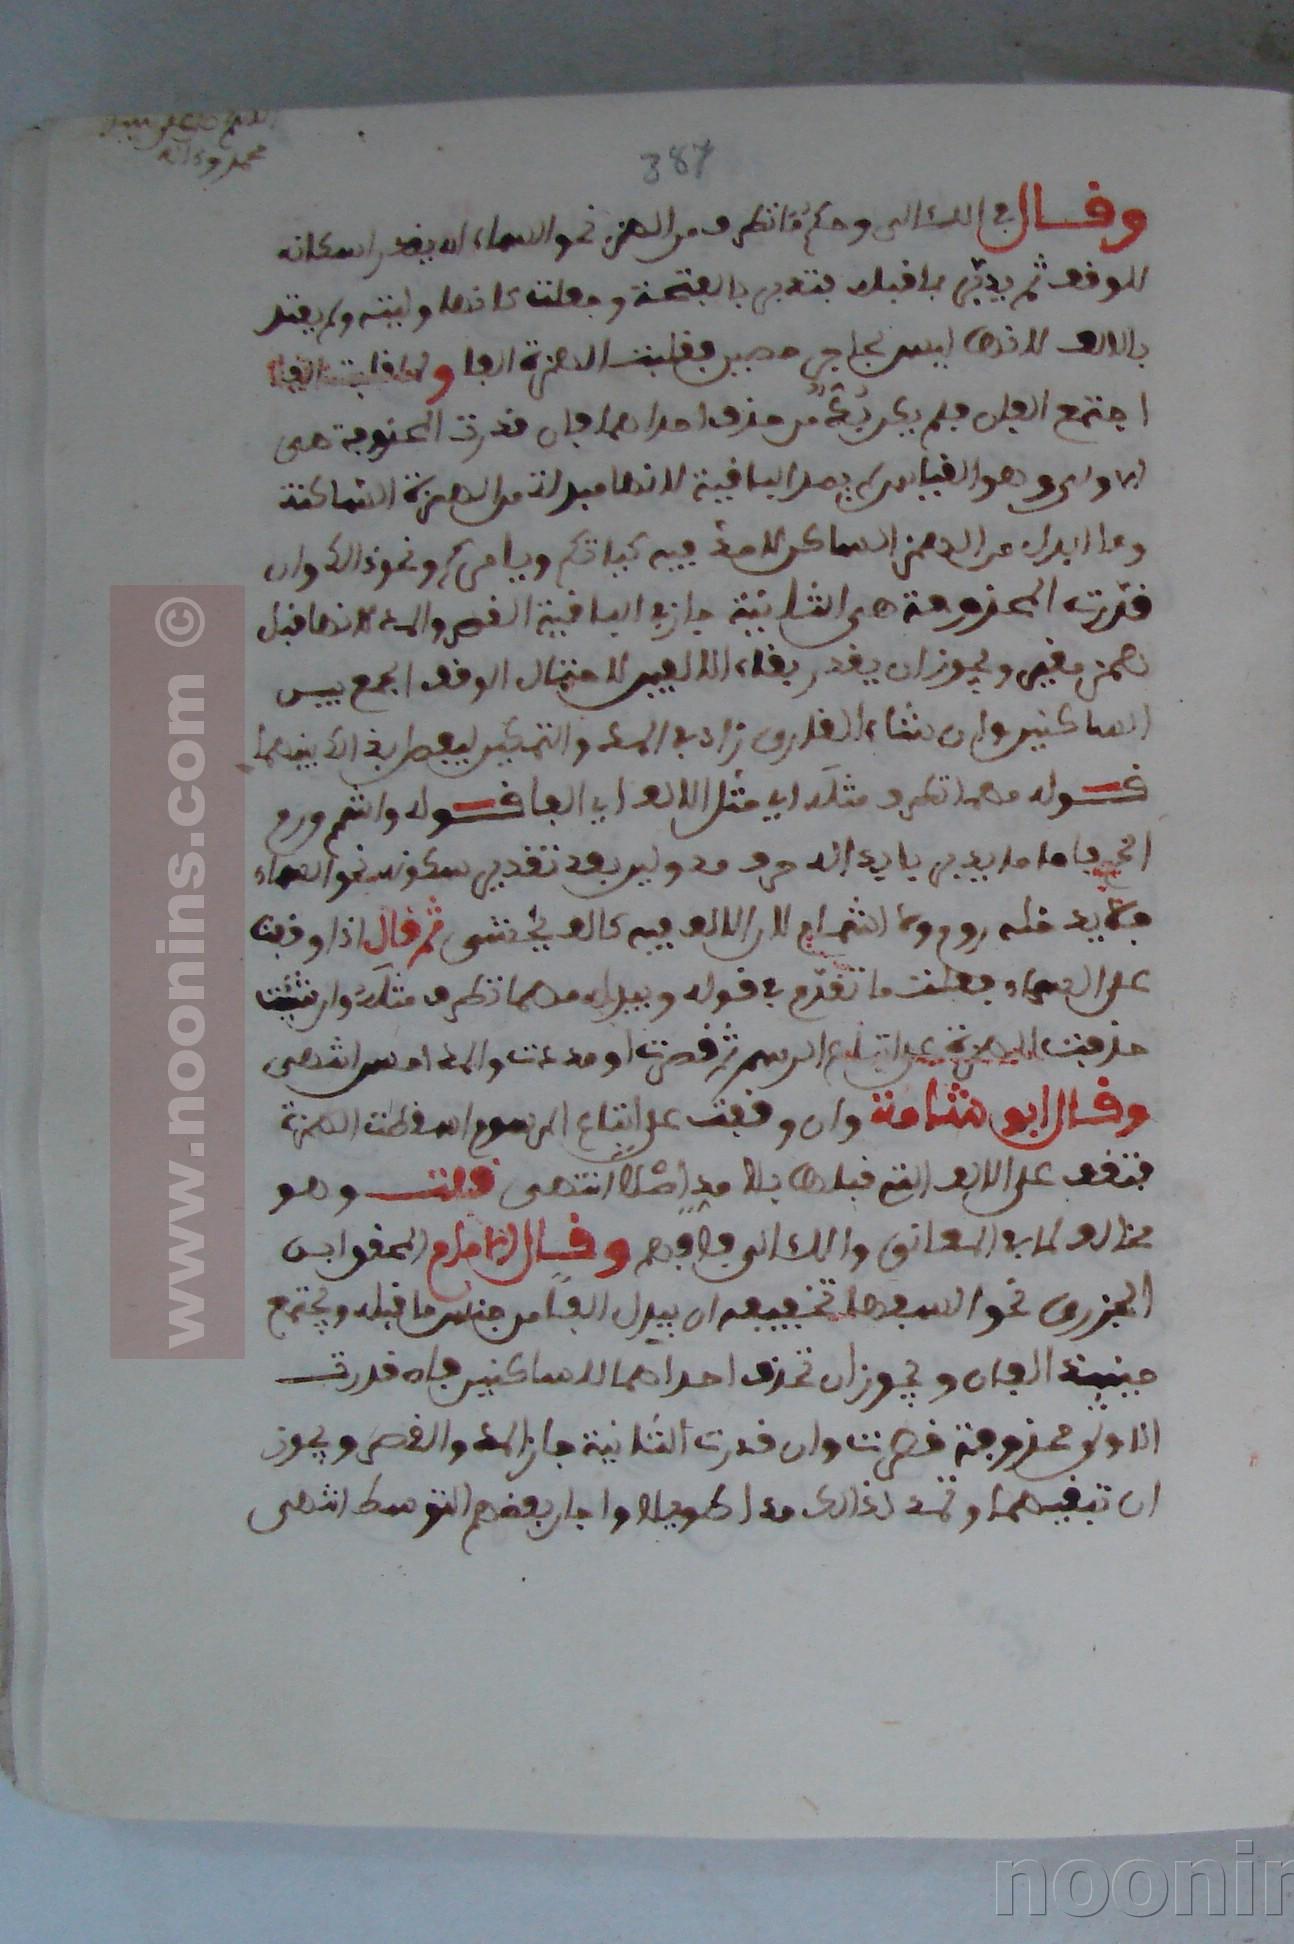 387
وقال في اللئالئ وحكم ما تطرف من الهمز نحو السماء انه يقدر اسكانه
للوقف ثم يدبر بما قبله فتدبر بالفتحة وجعلت كانها وليته ولم يعتد
بالالف لانها ليس بحاجز حصين فقلبت الهمزة الفا ولما قلبت الفا
اجتمع الفان فلم يكن بد من حذف احداهما فان قدرت المحذوفة هي
الاولى وهو القياس لم يمد الباقية لانها مبدلة من الهمزة الساكنة
وما ابدل من الهمز الساكن لا مد فيه كياتكم ويامركم ونحو ذلك وان
قدرت المحذوفة هي الثانية جاز في الباقية القصر والمد لانها قبل
همز مغير ويجوز ان يقدر بقاء الالفين لاحتمال الوقف الجمع بين
الساكنين وان شاء القارئ زاد في المد والتمكين ليفصل بذلك بينهما
قوله مهما تطرف مثله اي مثل الالف اي الفا قوله واشمم ورم
الخ فاما ما يدبر بابداله حرف مد ولين بعد تقدير سكونه نحو السماء
فلا يدخله روم ولا اشمام لان الالف فيه كالف يخشى ثم قال اذا وقفت
على السماء فعلت ما تقدم في قوله ويبدله مهما تطرف مثله وان شئت
حذفت الهمزة على اتباع الرسم ثم قصرت او مددت والمد احسن انتهى
وقال ابو شامة وان وقفت على اتباع الرسوم اسقطت الهمزة
فتقف على الالف التي قبلها بلا مد اصلا انتهى قلت وهو
مخالف لما في المعاني واللئالئ فافهم وقال الامام المحقق ابن
الجزري نحو السفهاء تخفيفه ان يبدل الفا من جنس ما قبله ويجتمع
حينئذ الفان ويجوز ان تحذف احداهما للساكنين فان قدرت
الاولى محذوفة قصرت وان قدرت الثانية جاز المد والقصر ويجوز
ان تبقيهما وتمد لذلك مدا طويلا واجاز بعضهم التوسط انتهى
www.noonins.com ©
noonin